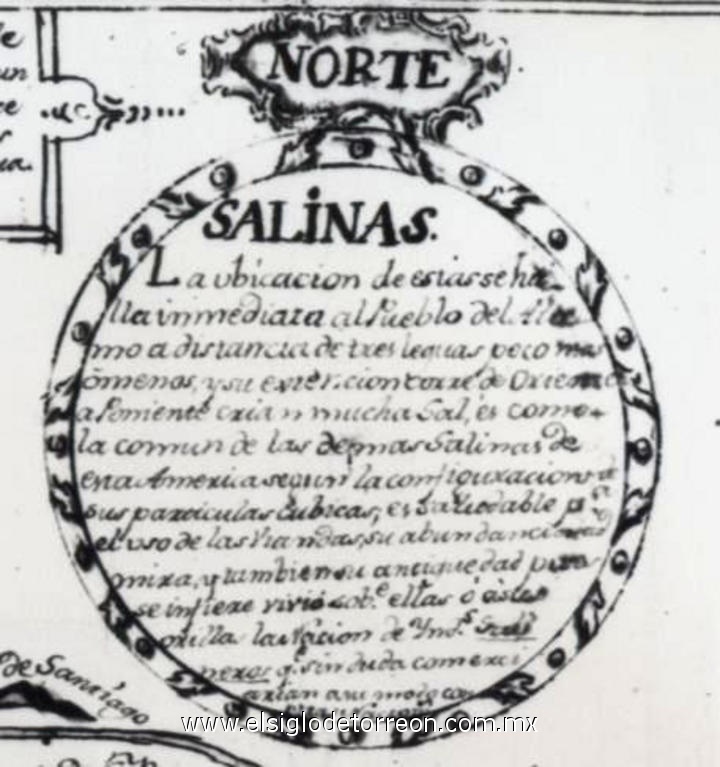 NORTE
SALiNAS.
La ubicacion de estas se ha-
lla inmediata al Pueblo del Ala-
mo a distancia de tres leguas poco mas
ò menos, y su extencion corre de Oriente
a Poniente crian mucha Sal, es como
la comun de las demas Salinas de
esta America segun la configuracion de
sus particulas cubicas, es saludable pa
el uso de las viandas, su abundancia
mixa, y tambien su antiguedad pues
se infiere vivió sobe. ellas ò à sus
orilla la Nacion de Ynds. Sali
neros q. sin duda comerci
arian a su modo con
de Santiago
www.elsiglodetorreon.com.mx